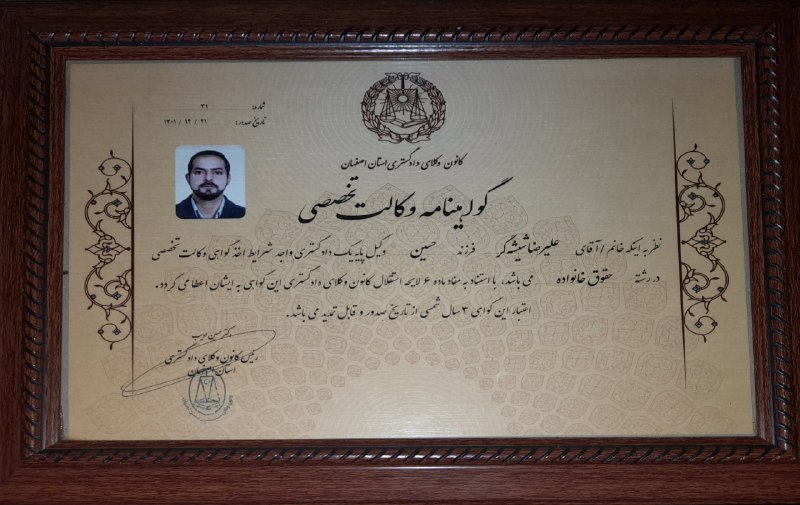 شماره: ۳۹
تاریخ صدور: ۲۱ / ۱۲ / ۱۴۰۱
کانون وکلای دادگستری استان اصفهان
گواهینامه وکالت تخصصی
نظر به اینکه خانم / آقای علیرضا شیشه‌گر فرزند حسین وکیل پایه یک دادگستری واجد شرایط اخذ گواهی وکالت تخصصی
در رشته حقوق خانواده می باشد، با استناد به مفاد ماده ۶ لایحه استقلال کانون وکلای دادگستری این گواهی به ایشان اعطا می گردد.
اعتبار این گواهی ۳ سال شمسی از تاریخ صدور و قابل تمدید می باشد.
دکتر حسن
رئیس کانون وکلای دادگستری
استان اصفهان